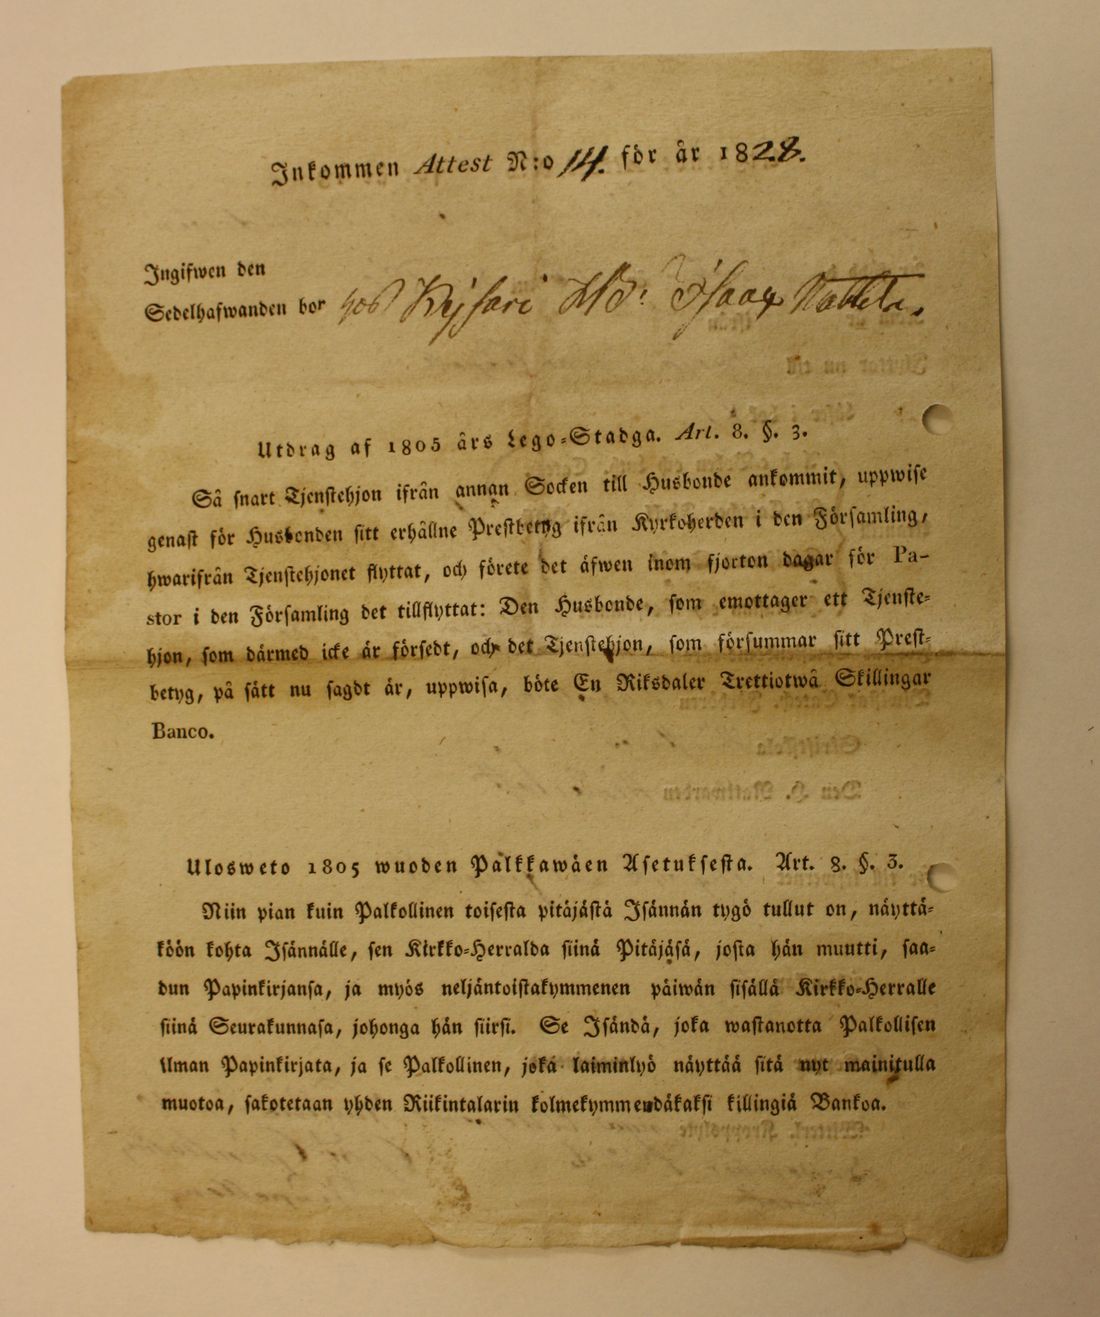 Inkommen Attest N:o 14. för år 1828.
Ingifwen den
Sedelhafwanden bor hos
Utdrag af 1805 års Lego-Stadga. Art. 8. §. 3.
Så snart Tjenstehjon ifrån annan Socken till Husbonde ankommit, uppwise
genast för Husbonden sitt erhållne Prestbetyg ifrån Kyrkoherden i den Församling,
hwarifrån Tjenstehjonet flyttat, och förete det äfwen inom fjorton dagar för Pa-
stor i den Församling det tillflyttat: Den Husbonde, som emottager ett Tjenste-
hjon, som därmed icke är försedt, och det Tjenstehjon, som försummar sitt Prest-
betyg, på sätt nu sagdt är, uppwisa, böte En Riksdaler Trettiotwå Skillingar
Banco.
Ulosweto 1805 wuoden Palkkawäen Asetuksesta. Art. 8. §. 3.
Niin pian kuin Palkollinen toisesta pitäjästä Isännän tygö tullut on, näyttä-
köön kohta Isännälle, sen Kirkko-Herralda siinä Pitäjäsä, josta hän muutti, saa-
dun Papinkirjansa, ja myös neljäntoistakymmenen päiwän sisällä Kirkko-Herralle
siinä Seurakunnasa, johonga hän siirsi. Se Isändä, joka wastanotta Palkollisen
ilman Papinkirjata, ja se Palkollinen, joka laiminlyö näyttää sitä nyt mainitulla
muotoa, sakotetaan yhden Riikintalarin kolmekymmendäkaksi killingiä Bankoa.